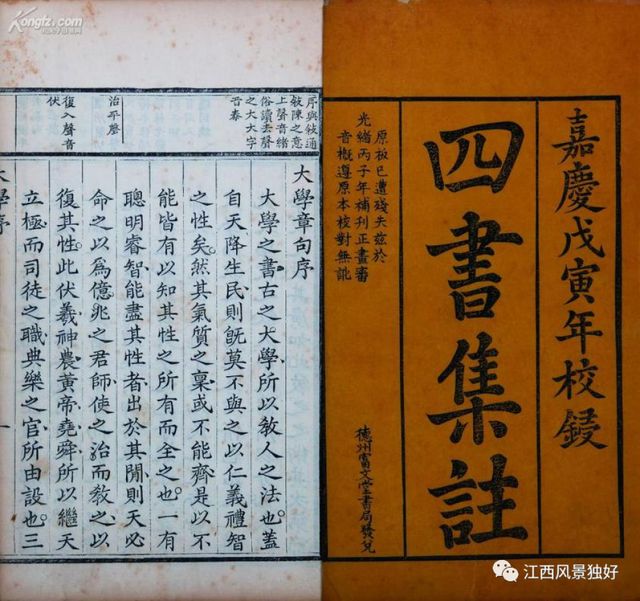 嘉慶戊寅年校鋟
四書集註
原板已遭殘失茲於
光緒丙子年補刊正畫審
音概遵原本校對無訛
德州富文堂書局發兌
序與敘通
敘陳之意
上聲音緒
俗讀去聲
之大大字
音泰
治平聲
復入聲音
伏
大學章句序
大學之書古之大學所以敎人之法也。蓋
自天降生民則旣莫不與之以仁義禮智
之性矣。然其氣質之稟或不能齊是以不
能皆有以知其性之所有而全之也。一有
聰明睿智能盡其性者出於其閒則天必
命之以為億兆之君師使之治而敎之以
復其性。此伏羲神農黃帝堯舜所以繼天
立極而司徒之職典樂之官所由設也。三
Kongfz.com
江西风景独好